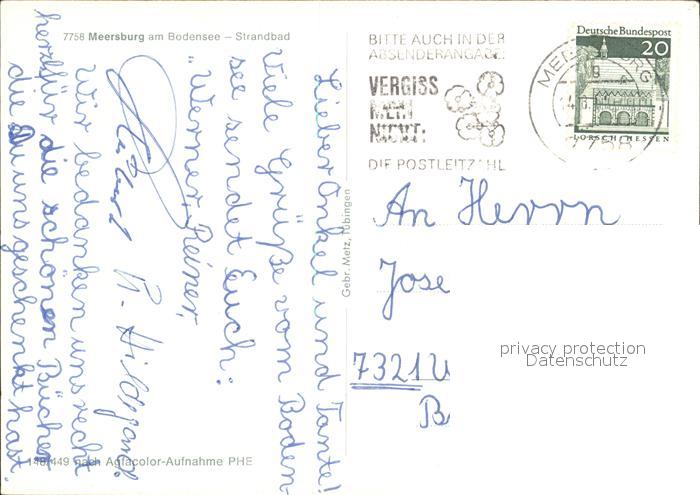 7758 Meersburg am Bodensee – Strandbad
Lieber Onkel und Tante!
Viele Grüße vom Boden-
see sendet Euch:
"Werner, Reiner,
R. Hildegard.
Wir bedanken uns recht
herzl. für die schönen Bücher
die Du uns geschenkt hast.
148/449 nach Agfacolor-Aufnahme PHE
Gebr. Metz, Tübingen
BITTE AUCH IN DER
ABSENDERANGABE:
VERGISS
MEIN
NICHT:
DIE POSTLEITZAHL
Deutsche Bundespost
20
LORSCH/HESSEN
7758
An Herrn
Jose
7321 U
B
privacy protection
Datenschutz